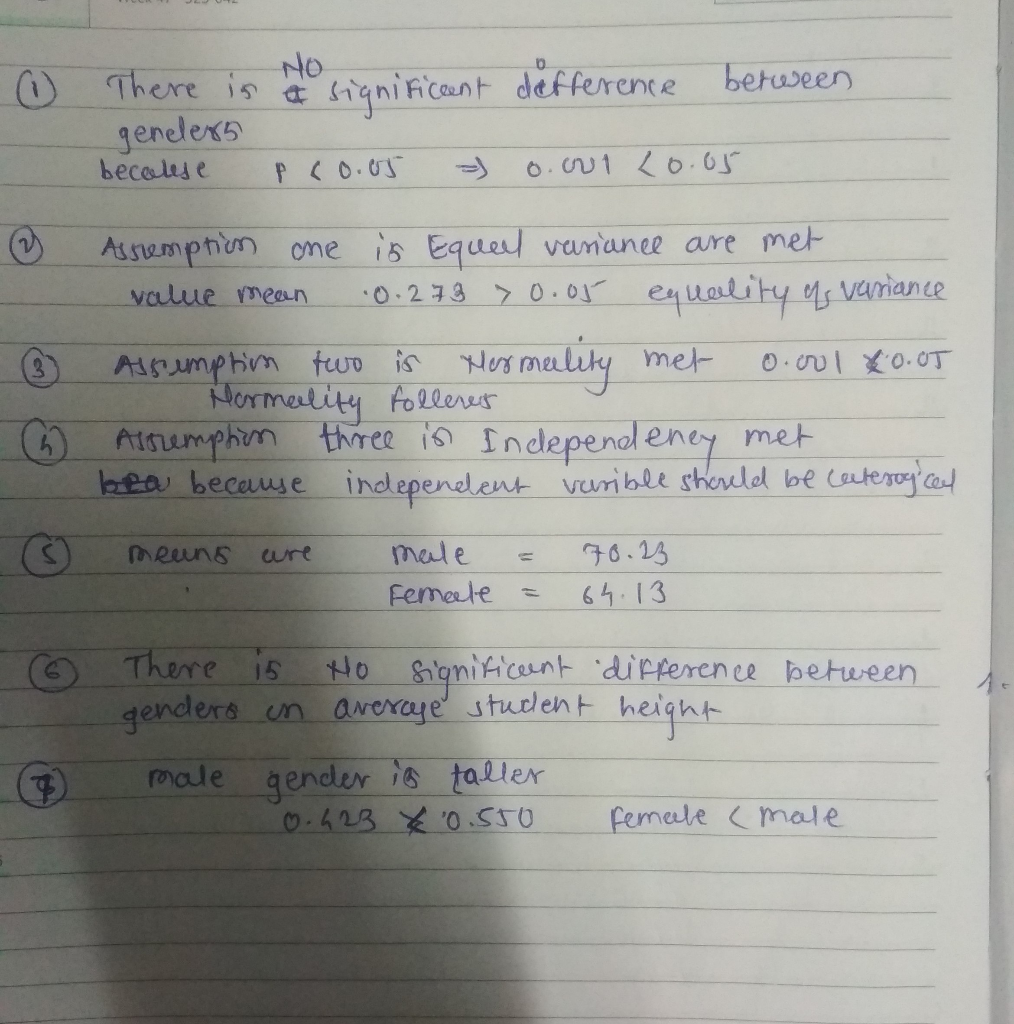 ① There is NO significant difference between
genders
because P < 0.05 ⇒ 0.001 < 0.05
② Assumption one is Equal variance are met
value mean 0.273 > 0.05 equality of variance
③ Assumption two is Normality met 0.001 < 0.05
Normality follows
④ Assumption three is Independency met
because independent varible should be caterogical
⑤ means are male = 70.23
Female = 64.13
⑥ There is No significant difference between
genders in average student height
⑦ male gender is taller
0.423 < 0.550 female < male